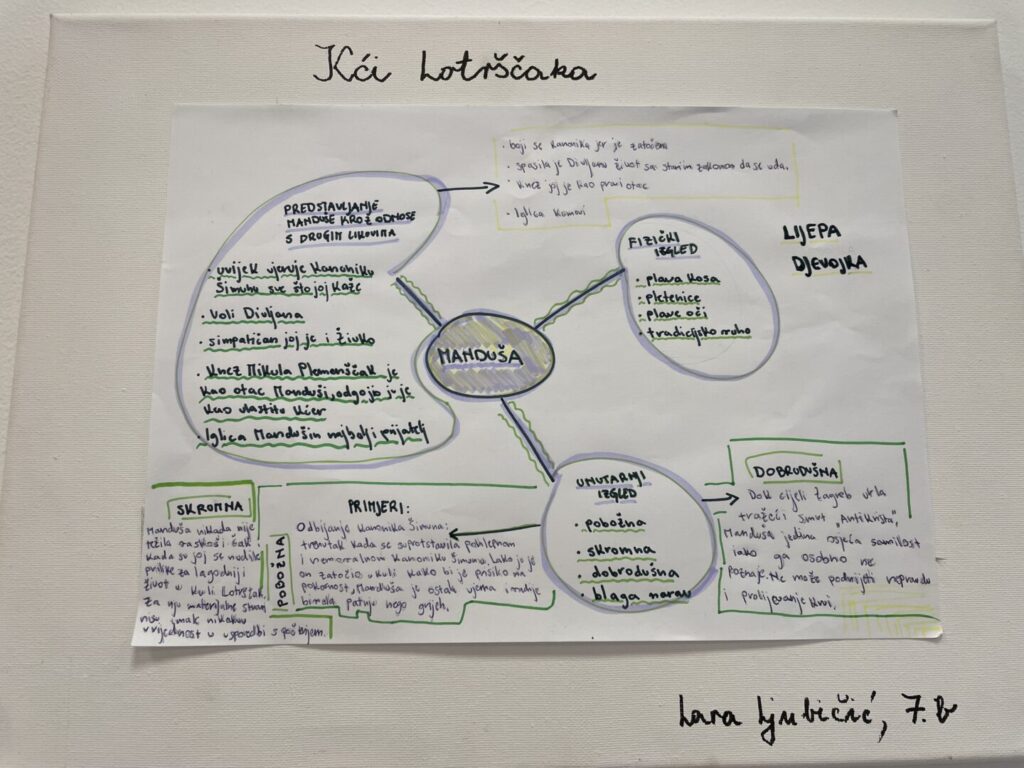 Kći Lotrščaka
• boji se kanonika jer je zatočena
• spasila je Divljanu život sa starim zakonom da se uda.
• knez joj je kao pravi otac
• Iglica Komovi
PREDSTAVLJANJE
MANDUŠE KROZ ODNOSE
S DRUGIM LIKOVIMA
• uvijek vjeruje kanoniku
Šimunu sve što joj kaže
• Voli Divljana
• simpatičan joj je i Živko
• Knez Mikula Plemenščak je
kao otac Manduši, odgojio ju je
kao vlastitu kćer
• Iglica Mandušin najbolji prijatelj
MANDUŠA
FIZIČKI
IZGLED
• plava kosa
• pletenice
• plave oči
• tradicijsko ruho
LIJEPA
DJEVOJKA
UNUTARNJI
IZGLED
• pobožna
• skromna
• dobrodušna
• blaga narav
SKROMNA
Manduša nikada nije
težila raskoši čak i
kada su joj se nudile
prilike za lagodniji
život u kuli Lotrščak,
za nju materijalne stvari
nisu imale nikakvu
vrijednost u usporedbi s poštenjem.
POBOŽNA
PRIMJERI:
Odbijanje kanonika Šimuna:
trenutak kada se suprotstavila pohlepnom
i nemoralnom kanoniku Šimunu. Iako ju je
on zatočio u kuli kako bi je prisilio na
pokornost, Manduša je ostala vjerna i radije
birala patnju nego grijeh.
DOBRODUŠNA
Dok cijeli Zagreb urla
tražeći smrt „Antikrista“,
Manduša jedina osjeća samilost
iako ga osobno ne
poznaje. Ne može podnijeti nepravdu
i prolijevanje krvi.
Lara Ljubičić, 7.b